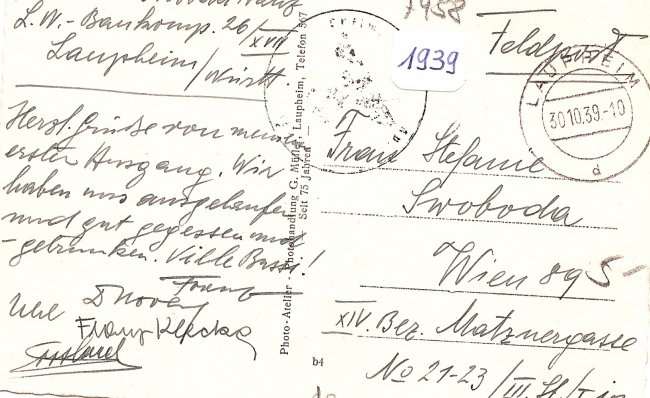 L.W.-Baukomp. 26/XVII
Laupheim/Württ.
Herzl. Grüße von meinem
ersten Ausgang. Wir
haben uns ausgelaufen
und gut gegessen und
-getrunken. Viele Bussi!
Franz
Franz Klecka
Photo-Atelier - Photohandlung G. Müller, Laupheim, Telefon 567
Seit 75 Jahren
b4
1938
1939
Feldpost
LAUPHEIM
30.10.39.-10
d
Frau Stefanie
Swoboda
Wien 89
XIV. Bez. Matznergasse
No 21-23/III. St/